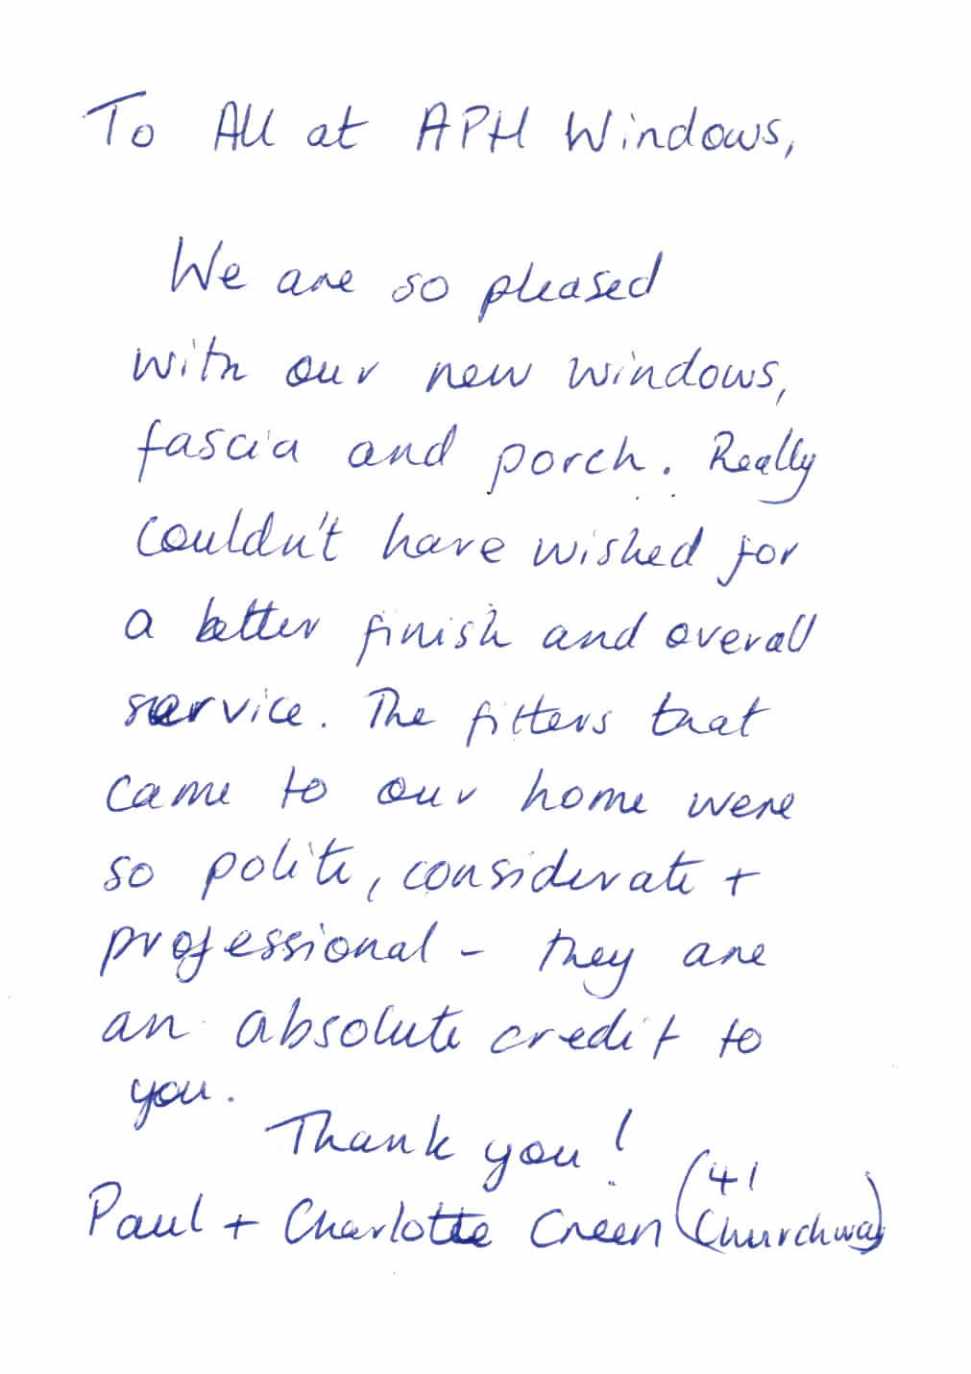 To All at APH Windows,
We are so pleased
with our new windows,
fascia and porch. Really
couldn't have wished for
a better finish and overall
service. The fitters that
came to our home were
so polite, considerate +
professional - they are
an absolute credit to
you.
Thank you!
Paul + Charlotte Creen (41
Churchway)